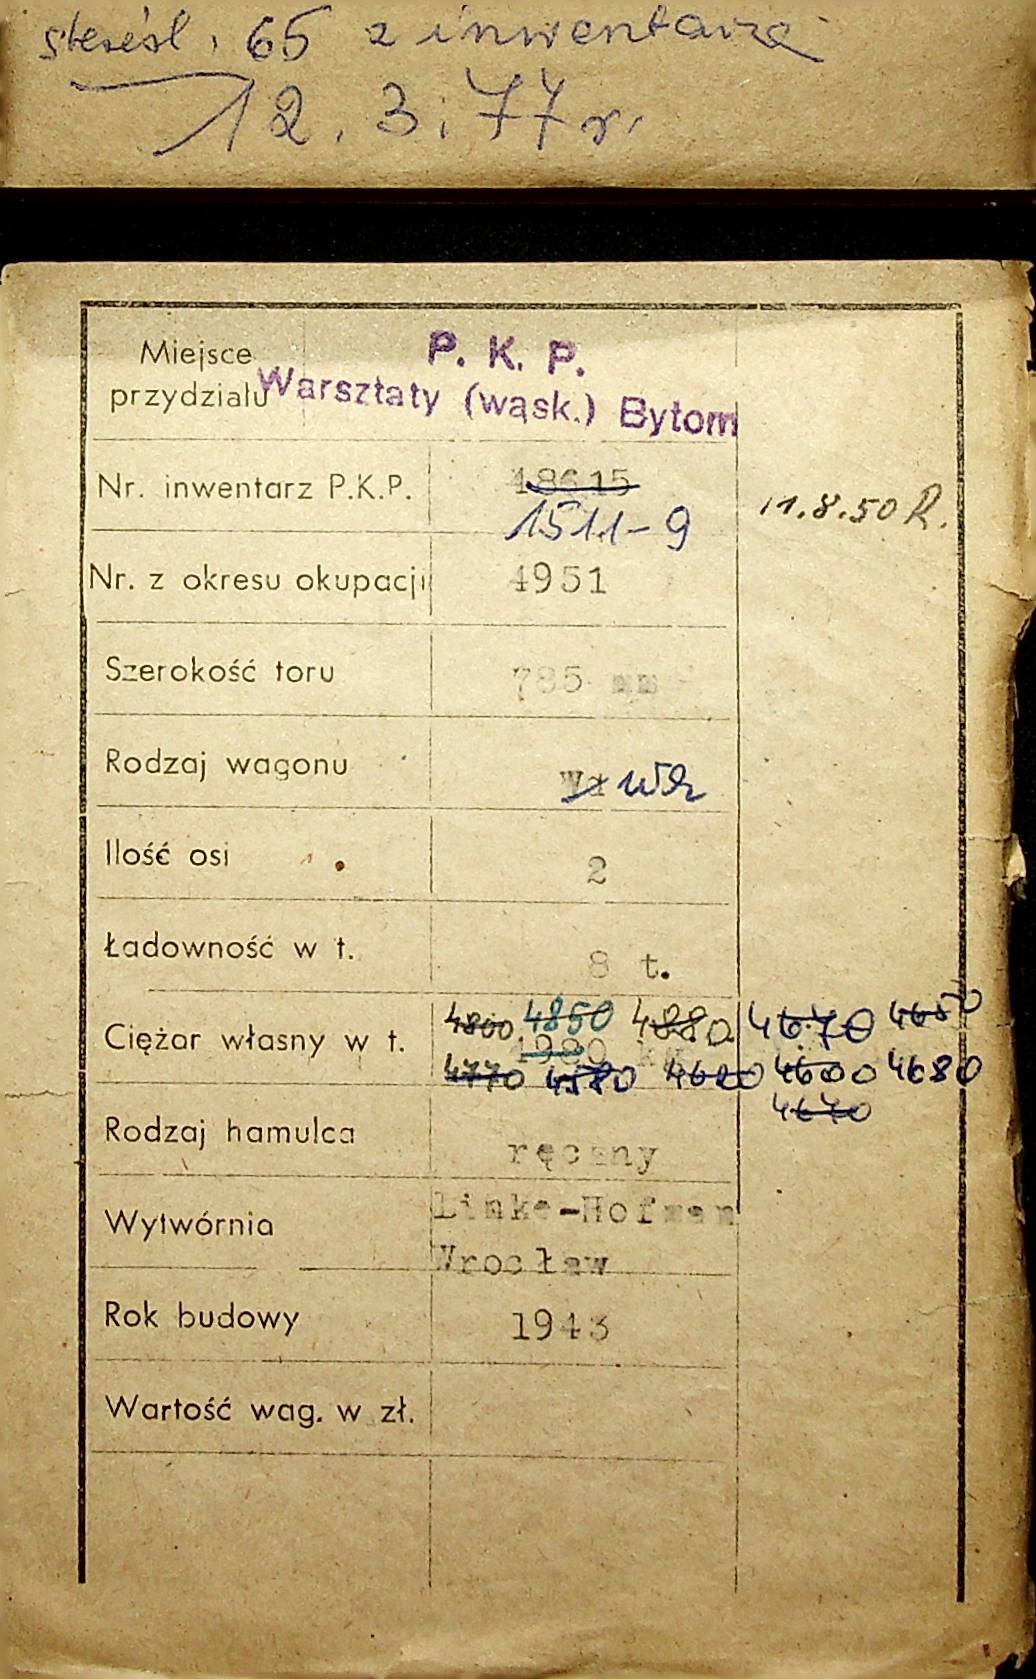 skreśl. 65 z inwentarza
12.3.77r.
Miejsce przydziału
P. K. P.
Warsztaty (wąsk.) Bytom
Nr. inwentarz P.K.P. 18615
1511-9 11.8.50 R.
Nr. z okresu okupacji 4951
Szerokość toru 785 mm
Rodzaj wagonu Wd
Ilość osi 2
Ładowność w t. 8 t.
4800 4850 4880 4670 4650
Ciężar własny w t. 4980 kg
4770 4580 4620 4600 4680
4640
Rodzaj hamulca ręczny
Wytwórnia Linke-Hofman
Wrocław
Rok budowy 1943
Wartość wag. w zł.